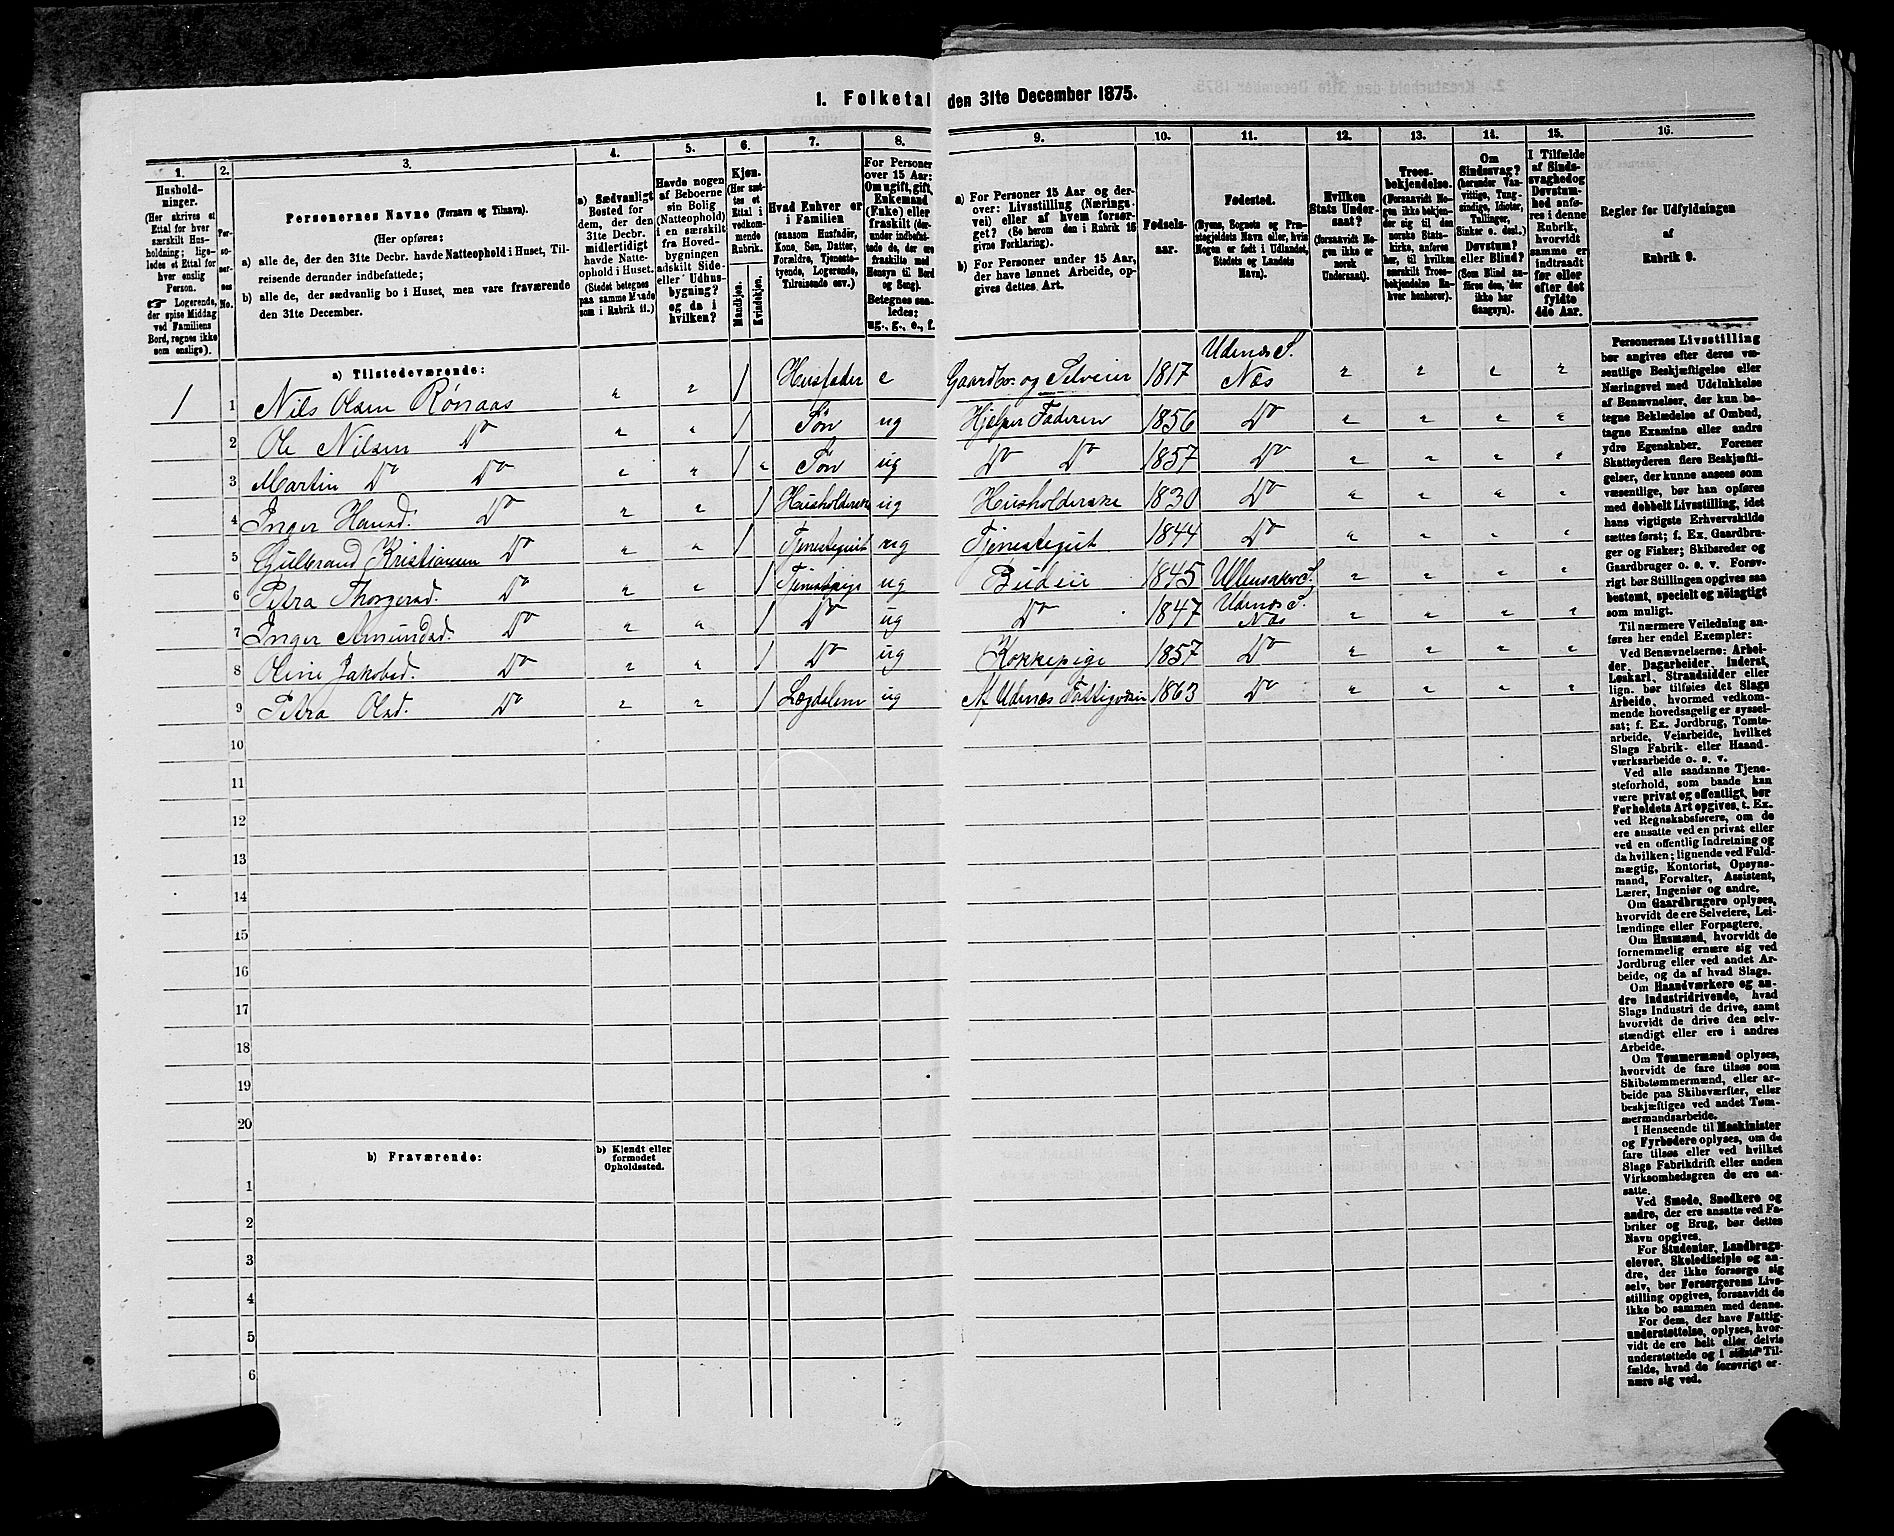 1. Folketal den 31te December 1875.
1. 2. 3. 4. 5. 6. 7. 8. 9. 10. 11. 12. 13. 14. 15. 16.
Hushold-
ninger.
(Her skrives et
Ettal for hver
særskilt Hus-
holdning; lige-
ledes et Ettal for
hver enslig
Person.
☞ Logerende,
der spise Middag
ved Familiens
Bord, regnes ikke
som enslige).
Per-
so-
ner-
nes
No.
Personernes Navne (Fornavn og Tilnavn).
(Her opføres:
a) alle de, der den 31te Decbr. havde Natteophold i Huset, Til-
reisende derunder indbefattede;
b) alle de, der sædvanlig bo i Huset, men vare fraværende
den 31te December.
a) Sædvanligt
Bosted for
dem, der den
31te Decbr.
midlertidigt
havde Natte-
ophold i Huset.
(Stedet betegnes
paa samme Maade
som i Rubrik 11.)
Havde nogen
af Beboerne
sin Bolig
(Natteophold)
i en særskilt
fra Hoved-
bygningen
adskilt Side-
eller Udhus-
bygning?
og da i
hvilken?
Kjøn.
(Her sæt-
tes et
Ettal i
vedkom-
mende
Rubrik.
Mandkjøn.
Kvindekjøn.
Hvad Enhver er
i Familien
(saasom Husfader,
Kone, Søn, Datter,
Forældre, Tjeneste-
tyende, Logerende,
Tilreisende osv.)
For Personer
over 15 Aar:
Om ugift, gift,
Enkemand
(Enke) eller
fraskilt (der-
under indbefat-
tede de, der ere
fraskilte med
Hensyn til Bord
og Seng).
Betegnes saa-
ledes:
ug., g., e., f.
a) For Personer 15 Aar og der-
over: Livsstilling (Nærings-
vei) eller af hvem forsør-
get? (Se herom den i Rubrik 16
givne Forklaring).
b) For Personer under 15 Aar,
der have lønnet Arbeide, op-
gives dettes Art.
Fødsels-
aar.
Fødested.
(Byens, Sognets og Præ-
stegjeldets Navn eller, hvis
Nogen er født i Udlandet,
Stedets og Landets
Navn).
Hvilken
Stats Under-
saat?
(forsaavidt No-
gen ikke er
norsk
Undersaat).
Troes-
bekjendelse.
(Forsaavidt No-
gen ikke bekjen-
der sig til den
norske Stats-
kirke, anføres
her, til hvilken
særskilt Troes-
bekjendelse En-
hver henhører).
Om
Sindssvag?
(herunder Van-
vittige, Tung-
sindige, Idioter,
Tullinger,
Sinker o. desl.)
Døvstum?
eller Blind?
(Som Blind an-
føres den, der
ikke har
Gangsyn).
I Tilfælde
af Sinds-
svaghed og
Døvstum-
hed anfø-
res i denne
Rubrik,
hvorvidt
samme er
indtraadt
før eller
efter det
fyldte
4de Aar.
Regler for Udfyldningen
af
Rubrik 9.
a) Tilstedeværende:
1 1 Nils Olsen Rønaas " " 1 Husfader e Gaardbr. og Selveier 1817 Udenæs S. Næs " " " "
2 Ole Nilsen Do " " 1 Søn ug Hjelper Faderen 1856 Do " " " "
3 Martin Do Do " " 1 " Søn ug Do Do 1857 Do " " " "
4 Inger Hansd. Do " " 1 Husholderske ug Husholderske 1830 Do " " " "
5 Gulbrand Kristiansen Do " " 1 Tjenestegut ug Tjenestegut 1844 Do " " " "
6 Petra Thorgersd. Do " " 1 Tjenestepige ug Budeie 1845 Ullensaker S. " " " "
7 Inger Amundsd. Do " " 1 Do ug Do 1847 Udenæs S. Næs " " " "
8 Oline Jakobsd. Do " " 1 Do ug Kokkepige 1857 Do " " " "
9 Petra Olsd. Do " " 1 Lægdslem ug Af Udenæs Fattigvæsen 1863 Do " " " "
10
11
12
13
14
15
16
17
18
19
20
b) Fraværende:
b) Kjendt eller
formodet
Opholdssted.
1
2
3
4
5
6
Personernes Livsstilling
bør angives efter deres væ-
sentlige Beskjæftigelse eller
Næringsvei med Udelukkelse
af Benævnelser, der kun be-
tegne Beklædelse af Ombud,
tagne Examina eller andre
ydre Egenskaber. Forener
Skatteyderen flere Beskjæfti-
gelser, der kunne ansees som
væsentlige, bør han opføres
med dobbelt Livsstilling, idet
hans vigtigste Erhvervskilde
sættes først; f. Ex. Gaardbru-
ger og Fisker; Skibsreder og
Gaardbruger o. s. v. Forøv-
rigt bør Stillingen opgives saa
bestemt, specielt og nøiagtigt
som muligt.
Til nærmere Veiledning an-
føres her endel Exempler:
Ved Benævnelserne: Arbei-
der, Dagarbeider, Inderst,
Løskarl, Strandsidder eller
lign. bør tilføies det Slags
Arbeide, hvormed vedkom-
mende hovedsagelig er syssel-
sat; f. Ex. Jordbrug, Tomte-
arbeide, Veiarbeide, hvilket
Slags Fabrik- eller Haand-
værksarbeide o. s. v.
Ved alle saadanne Tjene-
steforhold, som baade kan
være privat og offentligt, bør
Forholdets Art opgives, t. Ex.
ved Regnskabsførere, om de
ere ansatte ved en privat eller
ved en offentlig Indretning og
da hvilken; lignende ved Fuld-
mægtig, Kontorist, Opsyns-
mand, Forvalter, Assistent,
Lærer, Ingeniør og andre.
Om Gaardbrugere oplyses,
hvorvidt de ere Selveiere, Lei-
lændinge eller Forpagtere.
Om Husmænd, hvorvidt de
fornemmelig ernære sig ved
Jordbrug eller ved andet Ar-
beide, og da af hvad Slags.
Om Haandværkere og an-
dre Industridrivende, hvad
Slags Industri de drive, samt
hvorvidt de drive den selv-
stændigt eller ere i andres
Arbeide.
Om Tømmermænd oplyses,
hvorvidt de fare tilsøs som
Skibstømmermænd, eller ar-
beide paa Skibsværfter, eller
beskjæftiges ved andet Tøm-
mermandsarbeide.
I Henseende til Maskinister
og Fyrbødere oplyses, om de
fare tilsøs eller ved hvilket
Slags Fabrikdrift eller anden
Virksomhedsgren de ere an-
satte.
Ved Smede, Snedkere og
andre, der ere ansatte ved Fa-
briker og Brug, bør dettes
Navn opgives.
For Studenter, Landbrugs-
elever, Skoledisciple og an-
dre, der ikke forsørge sig
selv, bør Forsørgerens Livs-
stilling opgives, forsaavidt de
ikke bo sammen med denne.
For dem, der have Fattig-
understøttelse, oplyses, hvor-
vidt de ere helt eller delvis
understøttede og i sidste Til-
fælde, hvad de forøvrigt er-
nære sig ved.